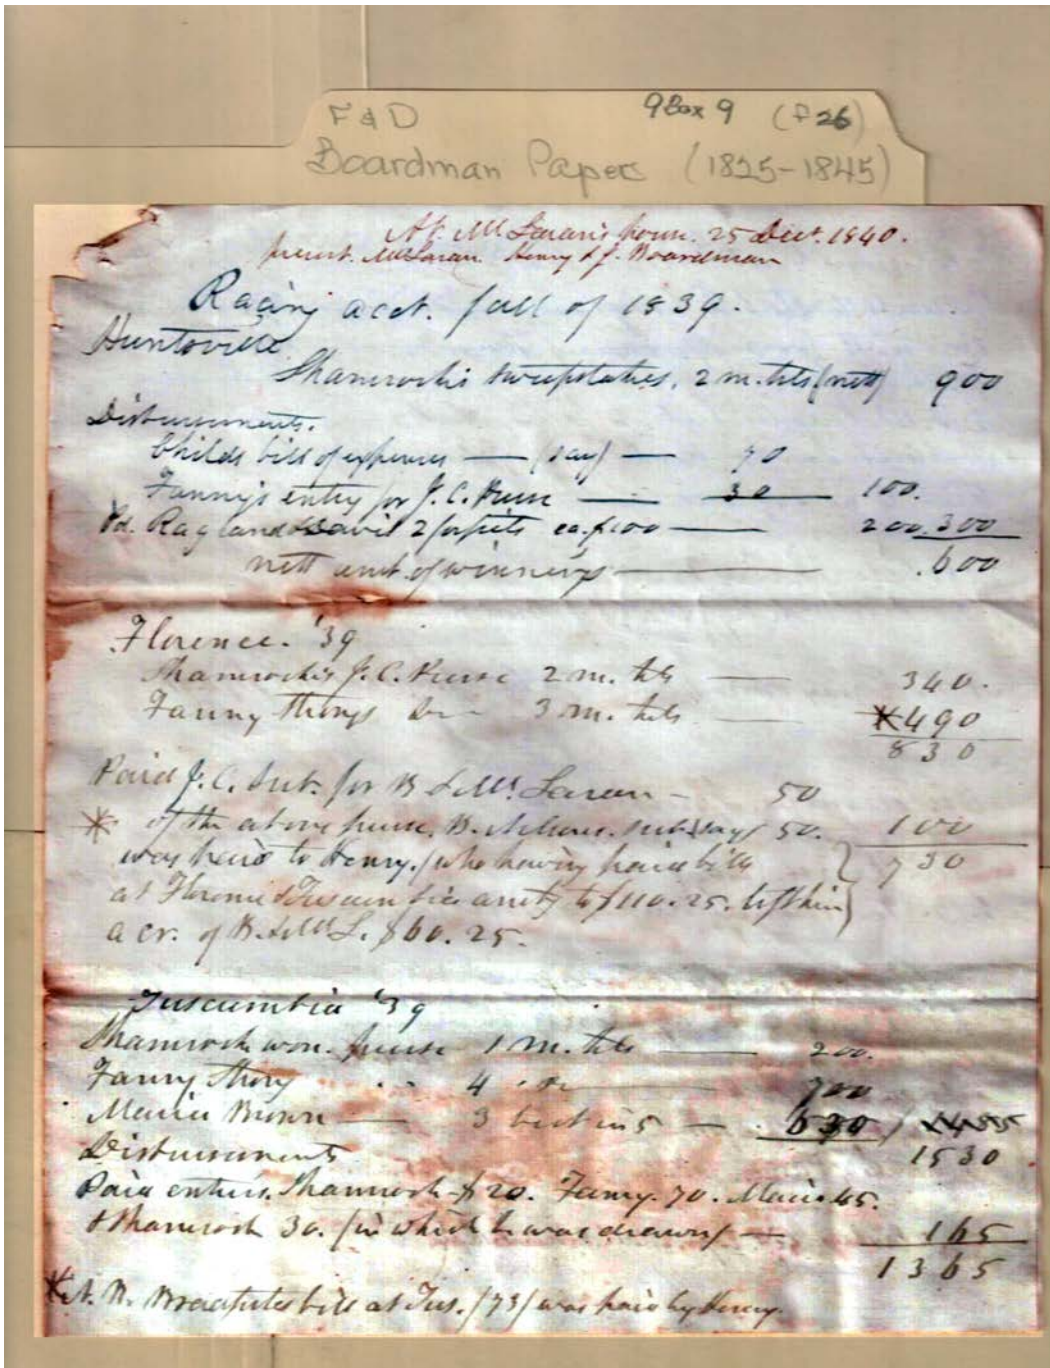 F & D 9Box 9 (f 26)
Boardman Papers (1825-1845)
At McLaran's house. 25 Dect. 1840.
present. McLaran. Henry & J. Boardman
Racing acct. fall of 1839.
Huntsville
Shamrock's sweepstakes. 2 m. hts (nett) 900
Disbursements.
Childs bill of expenses — (say) — 70
Fanny's entry for J. C. Purse — 30 100.
Pd. Ragland & Davis 2 forfeits ea. $100 — 200. 300
nett amt. of winnings — .600
Florence. '39
Shamrock's J. C. Purse 2 m. hts — 340.
Fanny Strong's Do — 3 m. hts — *490
830
Paid J. C. Sub. for B & McLaran — 50
* of the above purse, B. sub. (say) 50. 100
was paid to Henry. (who having paid bills 730
at Florence & Tuscumbia amtg to $110.25. left him)
a cr. of B. & McL. $60.25.
Tuscumbia '39
Shamrock won. purse 1 m. hts — 200.
Fanny Strong 4 Do — 700
Maria Brown — 3 best in 5 — 630 /
Disbursements 1530
Paid entries. Shamrock $20. Fanny. 70. Maria 45.
& Shamrock 30. (in which he was drawn) — 165
1365
*N. B. bill at Tus. (73) was paid by Henry.